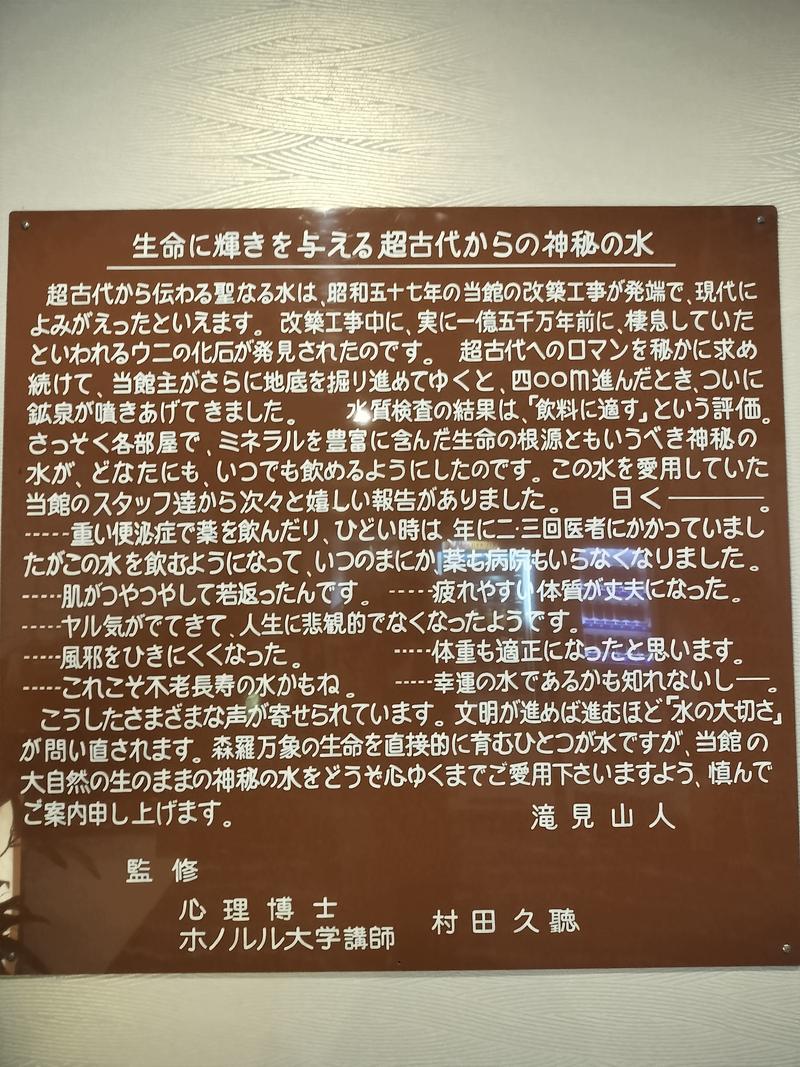 生命に輝きを与える超古代からの神秘の水
超古代から伝わる聖なる水は、昭和五十七年の当館の改築工事が発端で、現代に
よみがえったといえます。 改築工事中に、実に一億五千万年前に、棲息していた
といわれるウニの化石が発見されたのです。 超古代へのロマンを秘かに求め
続けて、当館主がさらに地底を掘り進めてゆくと、四〇〇m進んだとき、ついに
鉱泉が噴きあげてきました。 水質検査の結果は、「飲料に適す」という評価。
さっそく各部屋で、ミネラルを豊富に含んだ生命の根源ともいうべき神秘の
水が、どなたにも、いつでも飲めるようにしたのです。この水を愛用していた
当館のスタッフ達から次々と嬉しい報告がありました。 曰く―――――。
-----重い便泌症で薬を飲んだり、ひどい時は、年に二・三回医者にかかっていまし
たがこの水を飲むようになって、いつのまにか、薬も病院もいらなくなりました。
-----肌がつやつやして若返ったんです。 -----疲れやすい体質が丈夫になった。
-----ヤル気がでてきて、人生に悲観的でなくなったようです。
-----風邪をひきにくくなった。 -----体重も適正になったと思います。
-----これこそ不老長寿の水かもね。 -----幸運の水であるかも知れないし――。
こうしたさまざまな声が寄せられています。文明が進めば進むほど「水の大切さ」
が問い直されます。森羅万象の生命を直接的に育むひとつが水ですが、当館の
大自然の生のままの神秘の水をどうぞ心ゆくまでご愛用下さいますよう、慎んで
ご案内申し上げます。 滝見山人
監修
心理博士
ホノルル大学講師 村田久聴